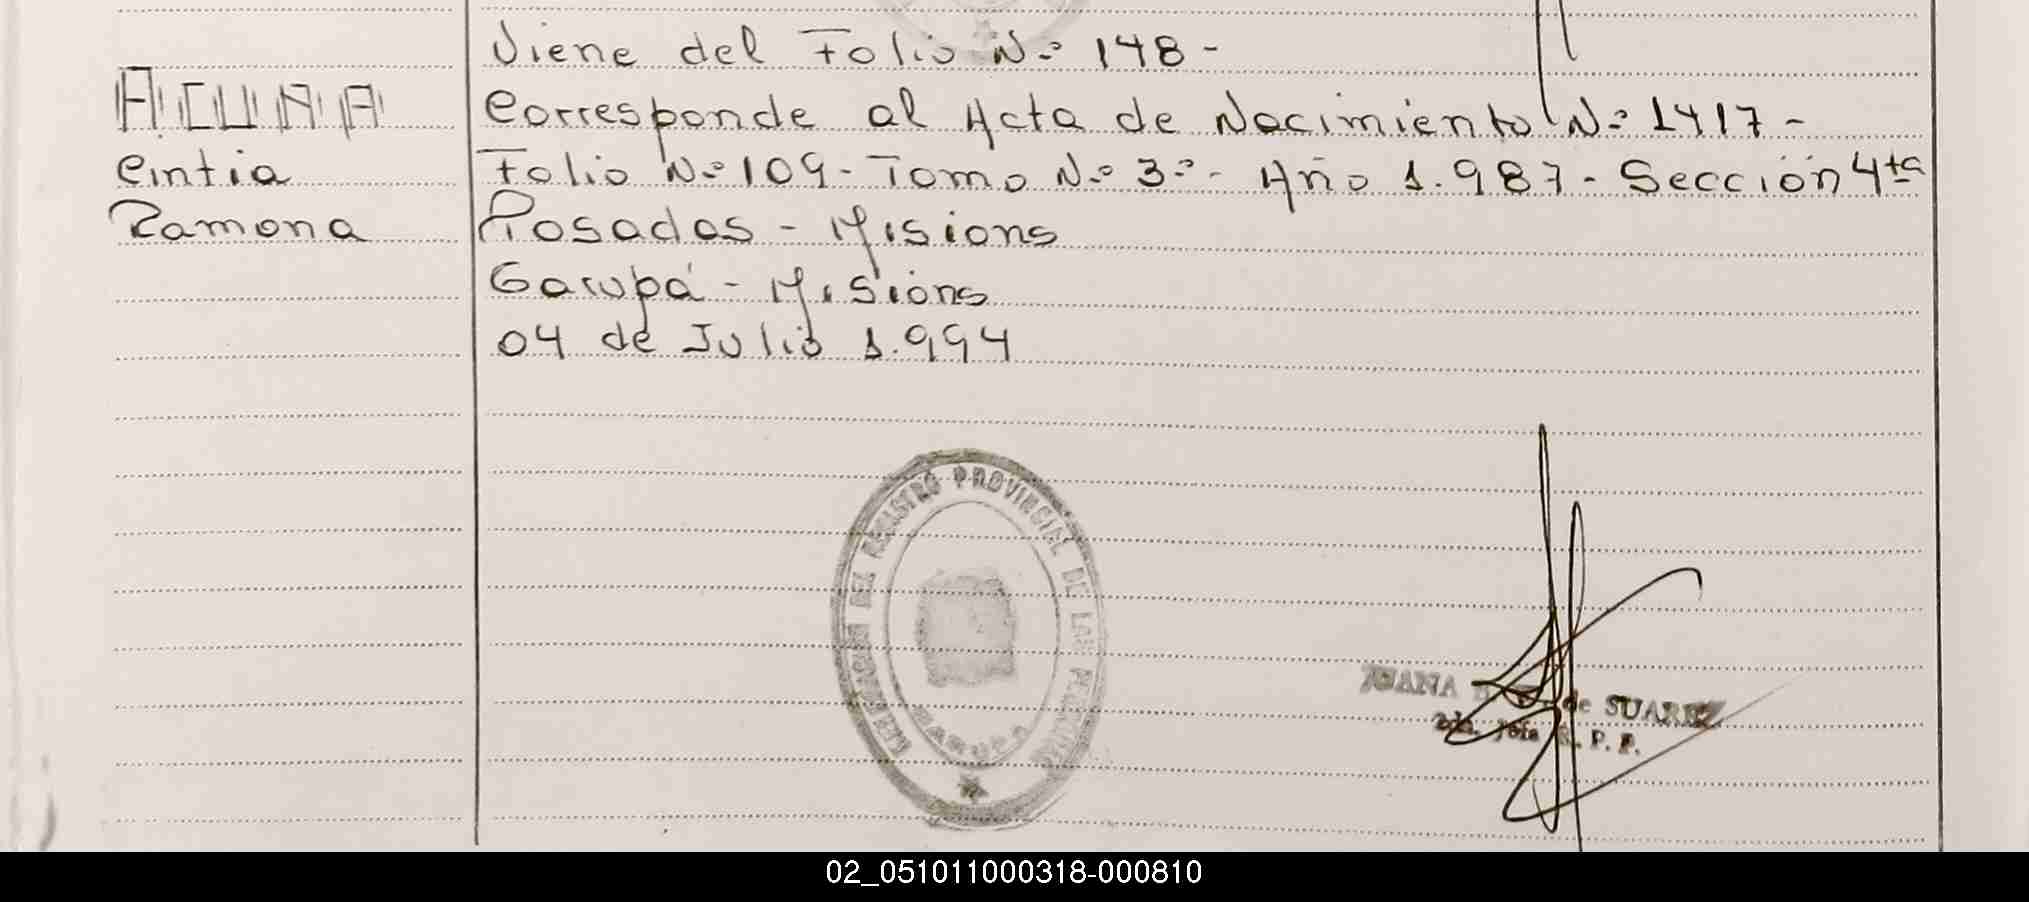 Viene del Folio N.º 148 -
ACUÑA
Corresponde al Acta de Nacimiento N.º 1417 -
Cintia
Folio N.º 109 - Tomo N.º 3.º - Año 1.987 - Sección 4ta
Ramona
Posadas - Misions
Garupá - Misions
04 de Julio 1.994
DELEGACION DEL REGISTRO PROVINCIAL DE LAS PERSONAS
GARUPA
JUANA de SUAREZ
2da. Jefa R. P. P.
02_051011000318-000810